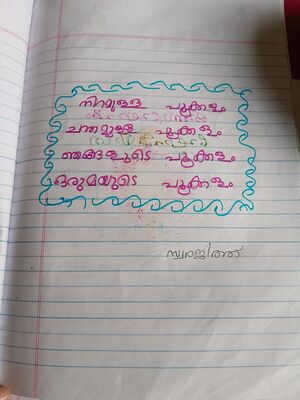 നിറമുള്ള പൂക്കളം
ചന്തമുള്ള പൂക്കളം
ഞങ്ങളുടെ പൂക്കളം
ഒരുമയുടെ പൂക്കളം
സ്വരജിത്ത്